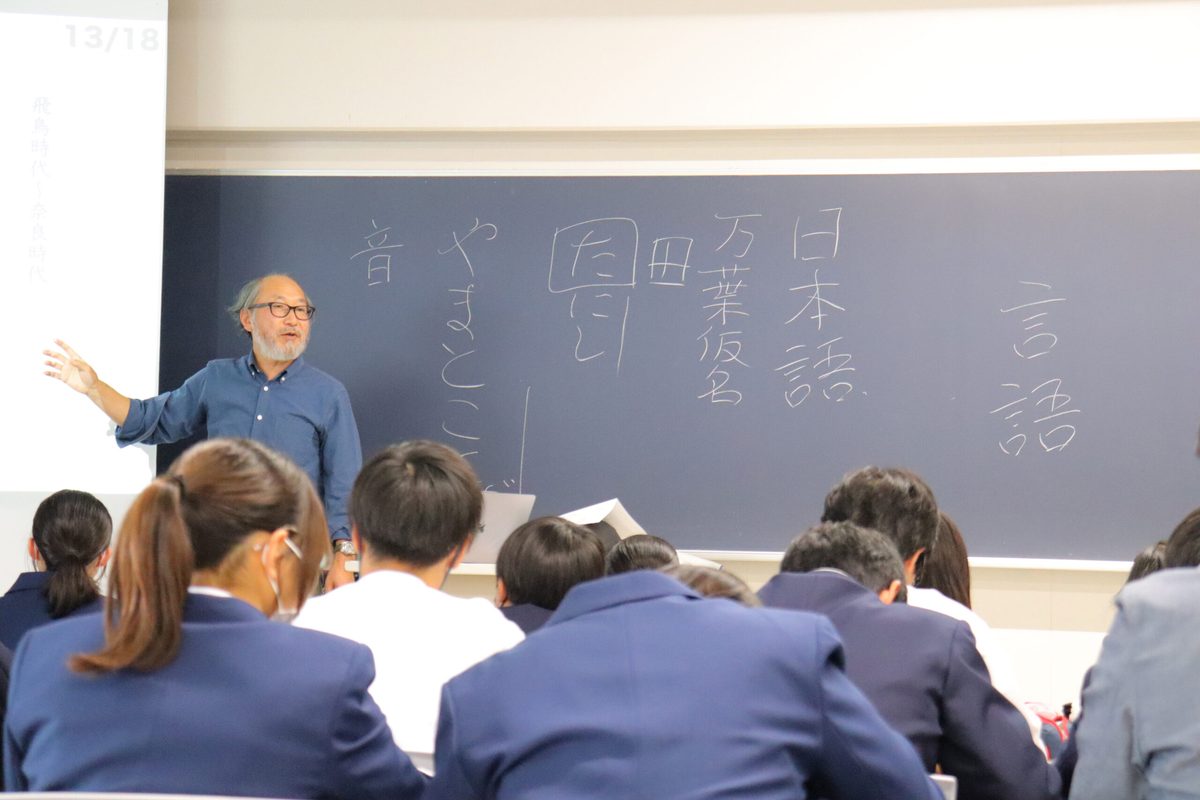 言語
日本語
万葉仮名
田
たにし
やまとことば
音
13/18
飛鳥時代〜奈良時代